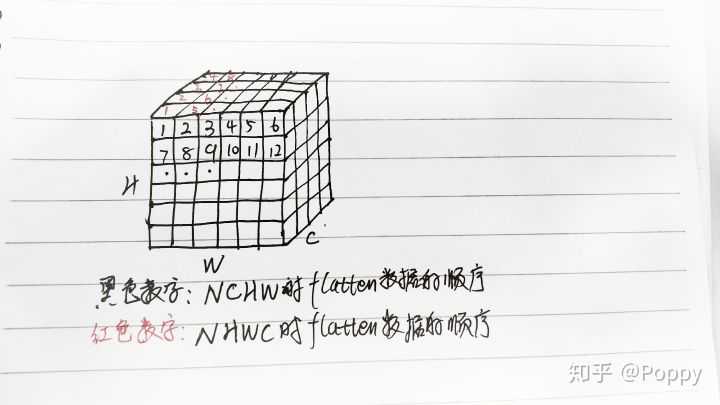 4 8
3 7
2 6
1 5
1 2 3 4 5 6
7 8 9 10 11 12
H
C
W
黑色数字: NCHW时flatten数据的顺序
红色数字: NHWC时flatten数据的顺序
知乎 @Poppy